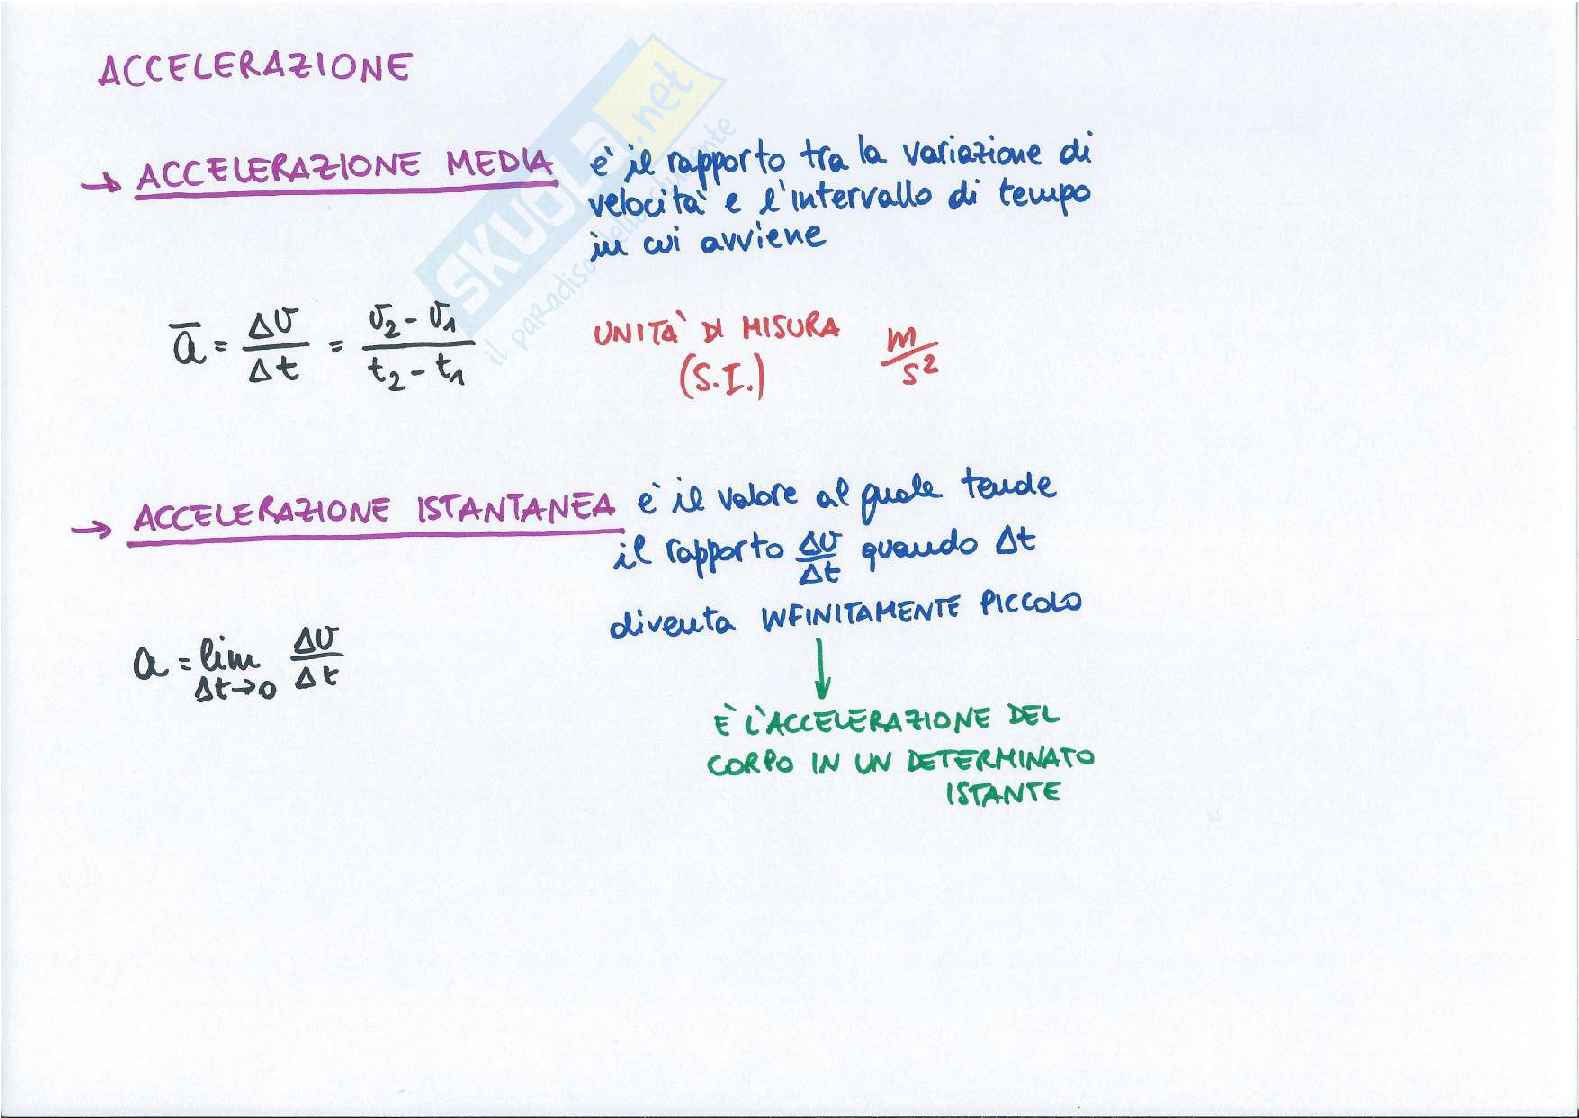 ACCELERAZIONE
→ ACCELERAZIONE MEDIA è il rapporto tra la variazione di
velocità e l'intervallo di tempo
in cui avviene
a̅ = Δv/Δt = (v₂ - v₁)/(t₂ - t₁)
UNITA' DI MISURA m/s²
(S.I.)
→ ACCELERAZIONE ISTANTANEA è il valore al quale tende
il rapporto Δv/Δt quando Δt
diventa INFINITAMENTE PICCOLO
a = lim Δt→0 Δv/Δt
↓
È L'ACCELERAZIONE DEL
CORPO IN UN DETERMINATO
ISTANTE
SKUOLA.net
il paradiso dello studente